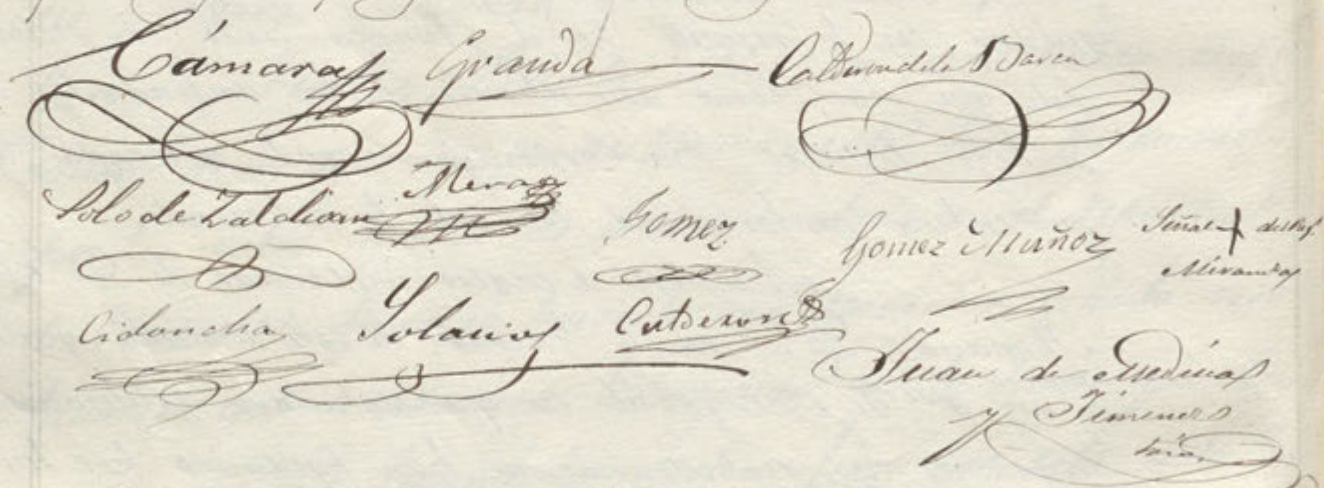 Cámara Granda Calderon de la Barca
Polo de Zaldivar Meras Gomez Gomez Muñoz Señal + del Rg.
Miranda
Cidoncha Solanos Calderon
Juan de Medina
y Jimenez